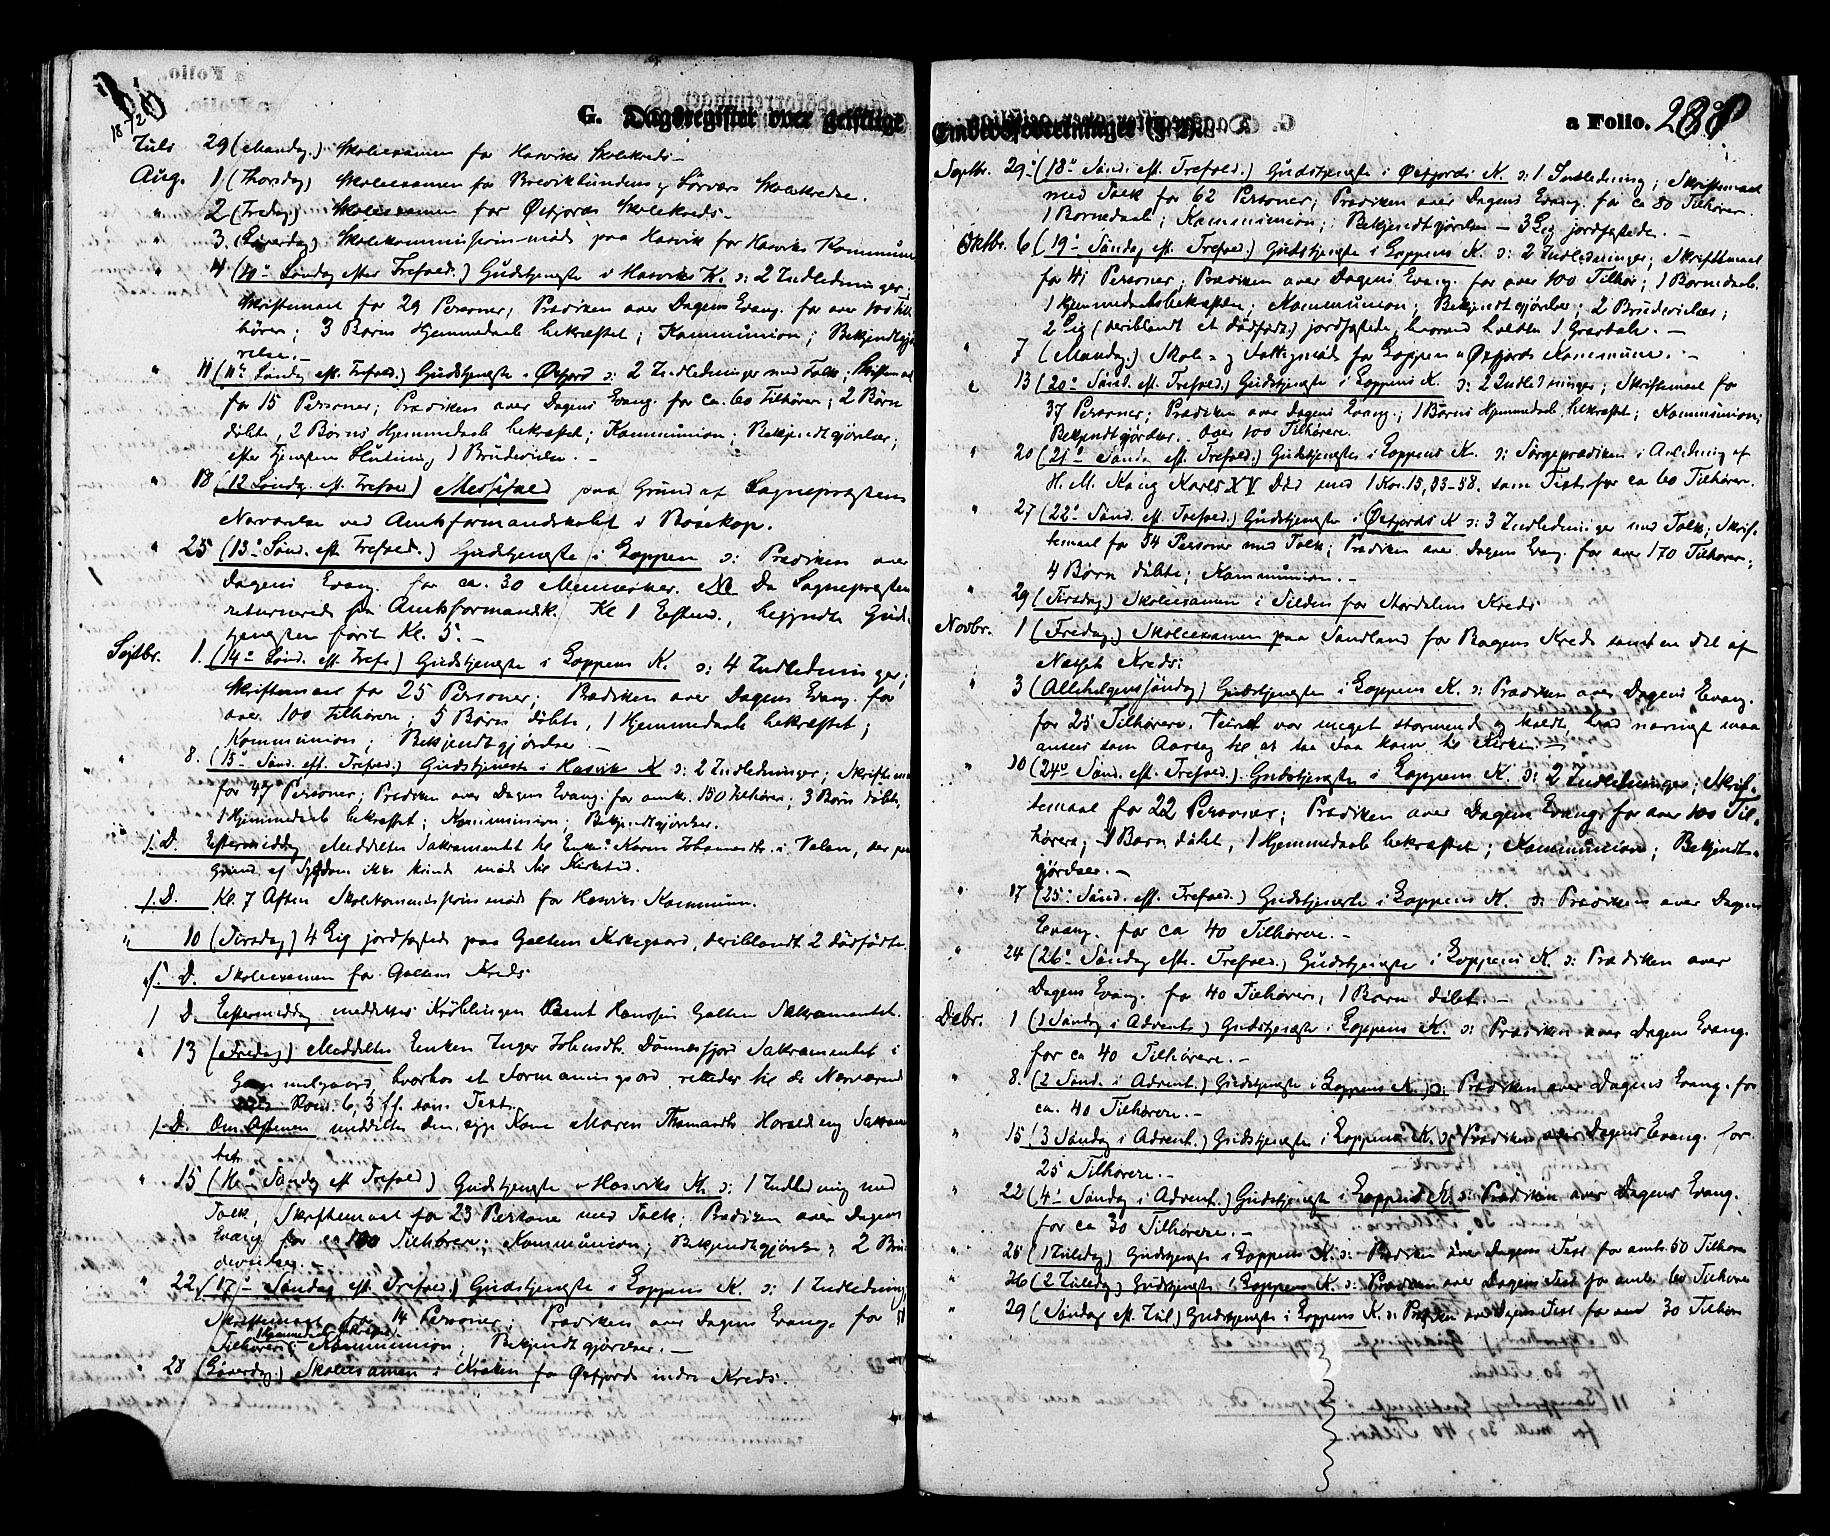 G. Dagsregister over geistlige
Juli 29 (Mandag.) Skoleexamen for Hasviks Skolekreds.
Aug. 1 (Thorsdag) Skoleexamen for Breviklundens og Sörvær Skolekredse.
" 2 (Fredag) Skoleexamen for Öxfjords Skolekreds.
" 3. (Löverdag) Skolekommissionsmöde paa Hasvik for Hasviks Kommune
" 4 (10de Söndag efter Trefold.) Gudstjeneste i Hasviks K. ɔ: 2 Indledninger;
Skriftemaal for 29 Personer; Prædiken over Dagens Evang. for over 100 Til-
hörere; 3 Börns Hjemmedaab bekræftet; Kommunion; Bekjendtgjö-
relse. –
" 11 (11te Söndag eft. Trefold.) Gudstjeneste i Öxfjord ɔ: 2 Indledninger med Tolk; Skriftemaal
for 15 Personer; Prædiken over Dagens Evang. for ca. 60 Tilhörere; 2 Börn
döbte, 2 Börns Hjemmedaab bekræftet; Kommunion; Bekjendtgjörelser;
efter Tjenestens Slutning 1 Brudevielse. –
" 18 (12 Söndag eft. Trefold) Messefald paa Grund af Sognepræstens
Nærværelse ved Amtsformandskabet i Bosekop.
" 25 (13de Sönd. eft Trefold.) Gudstjeneste i Loppen ɔ: Prædiken over
Dagens Evang. for ca. 30 Mennesker. NB Da Sognepræsten
returnerede fra Amtsformandsk. Kl 1 Efterm., begyndte Gud-
tjenesten först Kl. 5. –
Septbr. 1. (14de Sönd. eft. Trefo.) Gudstjeneste i Loppens K. ɔ: 4 Indledninger;
Skriftemaal for 25 Personer; Prædiken over Dagens Evang. for
over 100 Tilhörere; 5 Börn döbte, 1 Hjemmedaab bekræftet;
Kommunion; Bekjendtgjörelser. –
" 8. (15de Sönd. eft. Trefold.) Gudstjeneste i Hasvik K ɔ: 2 Indledninger; Skriftemaal
for 47 Personer; Prædiken over Dagens Evang. for omtr. 150 Tilhörere; 3 Börn döbte,
1 Hjemmedaab bekræftet; Kommunion; Bekjendtgjörelser.
s. D. Eftermiddag Meddeltes Sakramentet til Enke Karen Johannesdtr. i Velen, der paa
Grund af Sygdom ikke kunde möde til Kirketid.
s. D. Kl. 7 Aften Skolekommissionsmöde for Hasviks Kommune.
" 10 (Tirsdag) 4 Lig jordfæstede paa Galtens Kirkegaard, deriblandt 2 dödfödte.
s. D. Skoleexamen for Galtens Kreds.
s. D. Eftermiddag meddeltes Kröblingen Bernt Hanssen Galten Sakramentet.
" 13 (Fredag) Meddeltes Enken Inger Johnsdtr. Dönnesfjord Sakramentet i
Gammelgaard, hvorhos et Formaningsord rettedes til de Nærværende
over Rom. 6, 3 ff. som Text.
s. D. Om Aftenen meddeltes den syge Kone Maren Thomasdtr. Haraldeng Sakramen-
tet.
" 15 (16de Söndag eft Trefold.) Gudstjeneste i Hasviks K. ɔ: 1 Indledning med
Tolk, Skriftemaal for 23 Personer med Tolk; Prædiken over Dagens
Evang for ca 100 Tilhörere; Kommunion; Bekjendtgjörelser; 2 Bru-
devielser. –
" 22 (17de Söndag eft. Trefold.) Gudstjeneste i Loppens K. ɔ: 1 Indledning
Skriftemaal for 14 Personer; Prædiken over Dagens Evang. for
Tilhörere; Kommunion; Bekjendtgjörelser. –
" 28 (Löverdag.) Skoleexamen i Kraken for Öxfjords indre Kreds.
Embedsforretninger (§ 2). a Folio. 288
Septbr. 29. (18de Sönd. eft. Trefold.) Gudstjeneste i Öxfjords K. ɔ: 1 Indledning; Skriftemaal
med Tolk for 62 Personer; Prædiken over Dagens Evang. for ca 80 Tilhörere.
1 Barnedaab; Kommunion; Bekjendtgjörelse – 3 Lig jordfæstede. –
Oktbr. 6 (19de Söndag eft. Trefold.) Gudstjeneste i Loppens K. ɔ: 2 Indledninger; Skriftemaal
for 41 Personer; Prædiken over Dagens Evang. for over 100 Tilhör; 1 Barnedaab.
1 Hjemmedaabsbekræftelse; Kommunion; Bekjendtgjörelser; 2 Brudevielser;
2 Lig (deriblandt et dödfödt) jordfæstede, hvorved holdtes 1 Gravtale. –
" 7 (Mandag.) Skole- og Fattigmöde for Loppen & Öxfjords Kommune. –
" 13 (20de Sönd. eft. Trefold.) Gudstjeneste i Loppens K. ɔ: 2 Indledninger; Skriftemaal for
37 Personer; Prædiken over Dagens Evang.; 1 Barns Hjemmedaab bekræftet; Kommunion;
Bekjendtgjörelser. Over 100 Tilhörere.
" 20 (21de Söndag eft. Trefold.) Gudstjeneste i Loppens K. ɔ: Sörgeprædiken i Anledning af
H. M. Kong Karls XV Död med 1 Kor. 15, 53-58. som Text for ca 60 Tilhörere.
" 27 (22de Sönd. eft. Trefold.) Gudstjeneste i Öxfjords K ɔ: 3 Indledninger med Tolk; Skrif-
temaal for 54 Personer med Tolk; Prædiken over Dagens Evang. for over 170 Tilhörere;
4 Börn döbte; Kommunion. –
" 29 (Tirsdag) Skoleexamen i Tilden for Stordalens Kreds
Novbr. 1 (Fredag.) Skoleexamen paa Sandland for Bagens Kreds samt en Del af
Kreds:
" 3 (Allehelgenssöndag) Gudstjeneste i Loppens K. ɔ: Prædiken over Dagens Evang.
for 25 Tilhörere. Veiret var meget stormende og koldt, hvad nærmest maa
ansees som Aarsag til at saa faa kom til Kirke. –
" 10 (24de Sönd. eft. Trefold.) Gudstjeneste i Loppens K. ɔ: 2 Indledninger; Skrif-
temaal for 22 Personer; Prædiken over Dagens Evang. for over 100 Til-
hörere; 1 Barn döbt, 1 Hjemmedaab bekræftet; Kommunion; Bekjendt-
gjörelser. –
" 17 (25de Sönd. eft. Trefold.) Gudstjeneste i Loppens K. ɔ: Prædiken over Dagens
Evang. for ca 40 Tilhörere. –
" 24 (26de Söndag eft. Trefold.) Gudstjeneste i Loppens K. ɔ: Prædiken over
Dagens Evang. for 40 Tilhörere, 1 Barn döbt. –
Debr. 1 (1 Söndag i Advent.) Gudstjeneste i Loppens K. ɔ: Prædiken over Dagens Evang.
for ca 40 Tilhörere. –
" 8. (2 Sönd. i Advent.) Gudstjeneste i Loppens K. ɔ: Prædiken over Dagens Evang. for
ca. 40 Tilhörere. –
" 15 (3 Söndag i Advent.) Gudstjeneste i Loppens K. ɔ: Prædiken over Dagens Evang. for
25 Tilhörere. –
" 22 (4de Söndag i Advent.) Gudstjeneste i Loppens K ɔ: Prædiken over Dagens Evang.
for ca 30 Tilhörere. –
" 25 (1 Juledag) Gudstjeneste i Loppens K. ɔ: Prædiken over Dagens Text for omtr. 50 Tilhörere
" 26 (2 Juledag) Gudstjeneste i Loppens K. ɔ: Prædiken over Dagens Text for omtr. 60 Tilhörere
" 29 (Söndag eft. Jul) Gudstjeneste i Loppens K. ɔ: Prædiken over Dagens Text for omtr 30 Tilhörere